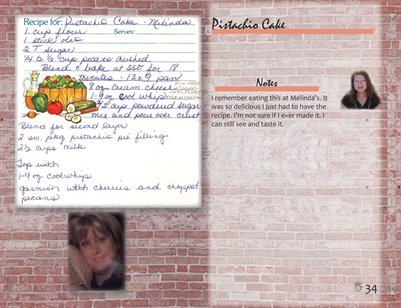 Recipe for: Pistachio Cake - Melinda
1 cup flour Serves:
1 stick oleo
2 T sugar
1/4 to 1/2 cup pecans crushed
Blend & bake at 350 for 18
minutes - 13 x 9 pan
8 oz cream cheese
1-9 oz cool whip
cup powdered sugar
mix and pour over crust
Blend for second layer
2 sm. pkg pistachio pie filling
2 1/2 cups milk
Top with
1-9 oz coolwhip
garnish with cherries and chopped
pecans
Pistachio Cake
Notes
I remember eating this at Melinda's. It
was so delicious I just had to have the
recipe. I'm not sure if I ever made it. I
can still see and taste it.
34